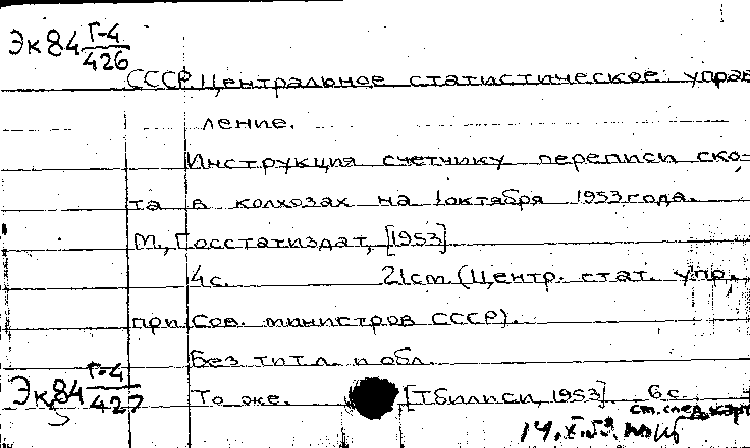 Эк 84 Г-4/426
СССР. Центральное статистическое управ
ление.
Инструкция счетчику переписи ско-
та в колхозах на 1 октября 1953 года.
М., Госстатиздат, [1953]
4 с. 21 cm (Центр. стат. упр.
при Сов. министров СССР).
Без тит. л. и обл.
Эк 84 Г-4/427 То же. [Тбилиси, 1953]. 6 с.
см. след. карт
14.